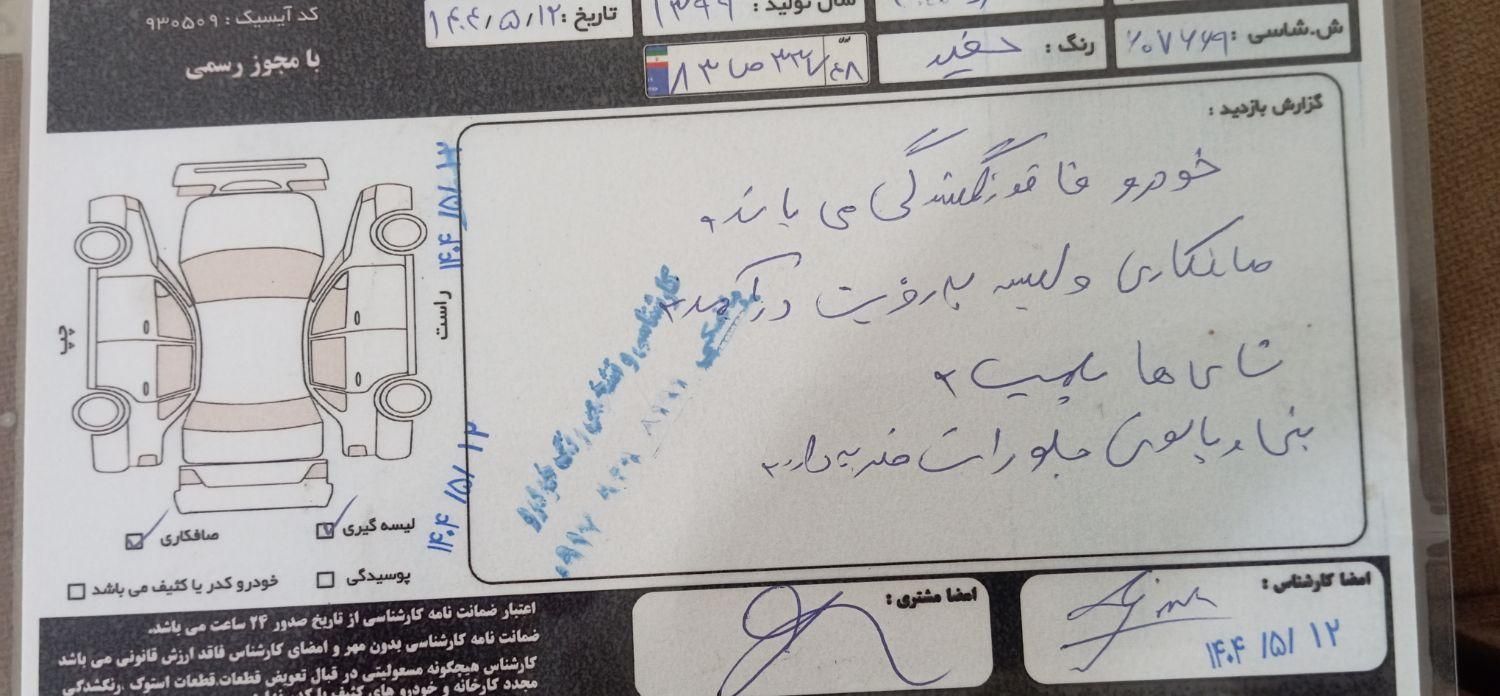 کد آیسیک : ۹۳۰۵۰۹
با مجوز رسمی
تاریخ : ۱۴۰۴/۵/۱۲
سال تولید : ۱۳۹۹
ش.شاسی :
رنگ : سفید
گزارش بازدید :
خودرو فاقد رنگشدگی می باشد
صافکاری و لیسه به رؤیت درآمد
شاسی ها پلمپ
جلو راست ضربه دارد
راست
چپ
۱۴۰۴/۵/۱۲
۱۴۰۴/۵/۱۲
لیسه گیری
صافکاری
پوسیدگی
خودرو کدر یا کثیف می باشد
امضا کارشناس :
۱۴۰۴/۵/۱۲
امضا مشتری :
اعتبار ضمانت نامه کارشناسی از تاریخ صدور ۲۴ ساعت می باشد.
ضمانت نامه کارشناسی بدون مهر و امضای کارشناس فاقد ارزش قانونی می باشد
کارشناس هیچگونه مسعولیتی در قبال تعویض قطعات،قطعات استوک ،رنگشدگی
مجدد کارخانه و خودرو های کثیف یا کدر